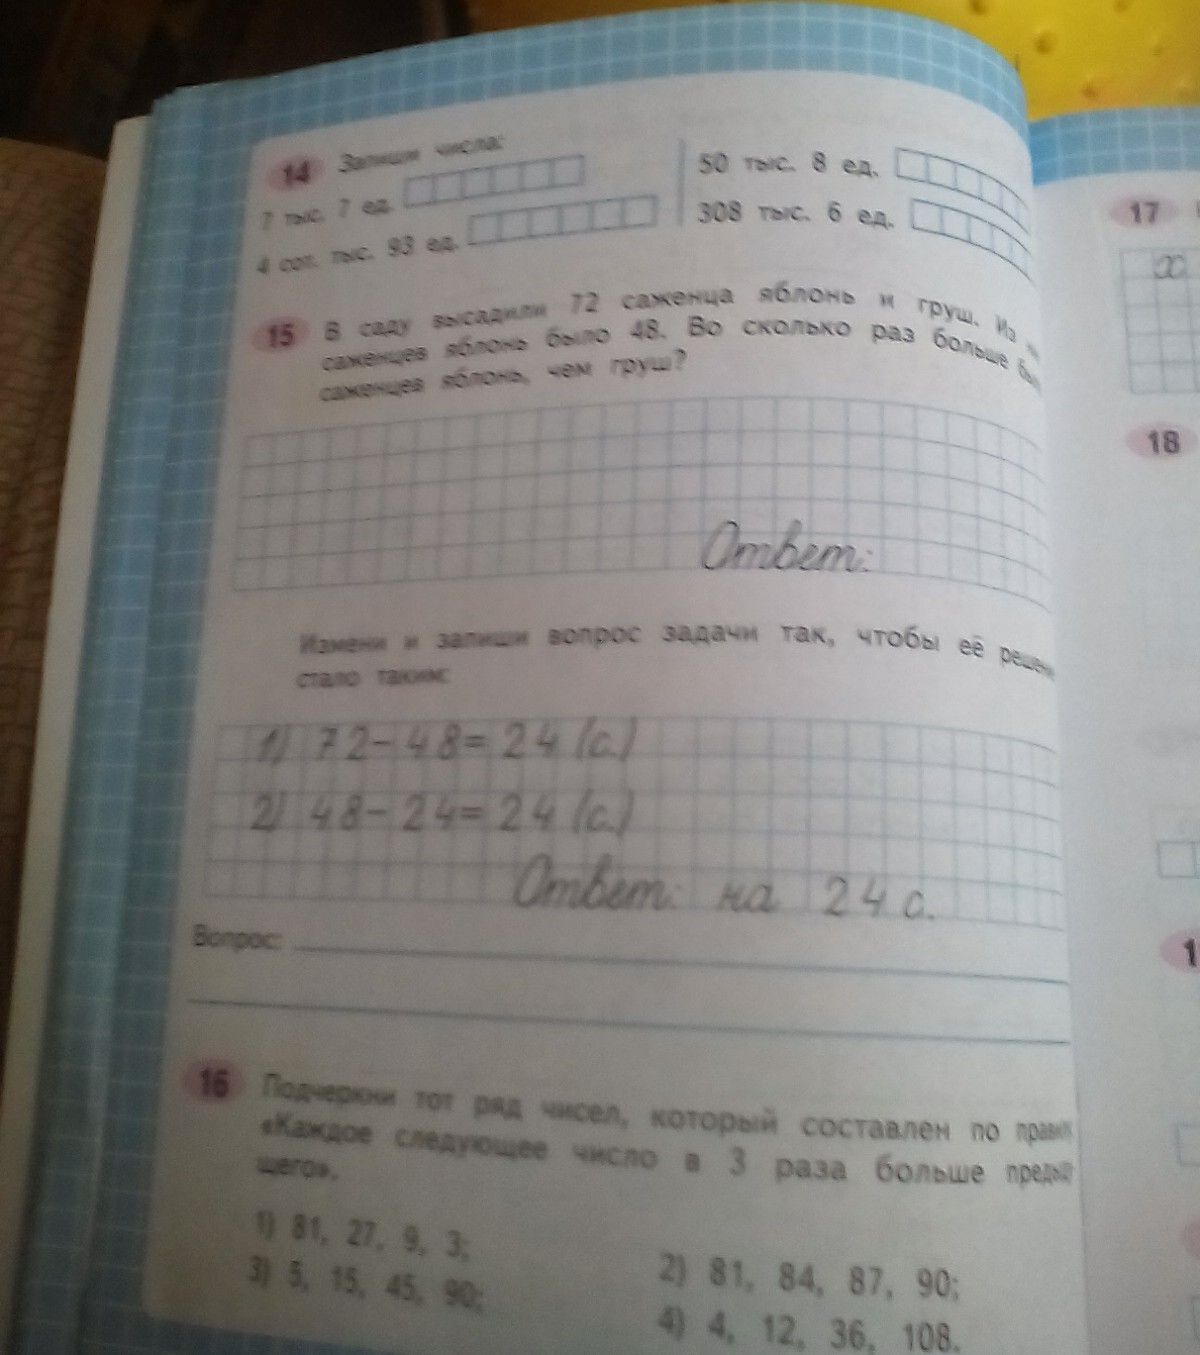 14 Запиши числа:
7 тыс. 7 ед.
4 сот. тыс. 93 ед.
50 тыс. 8 ед.
308 тыс. 6 ед.
15 В саду высадили 72 саженца яблонь и груш. Из
саженцев яблонь было 48. Во сколько раз больше
саженцев яблонь, чем груш?
Ответ:
Измени и запиши вопрос задачи так, чтобы её
стало таким:
1) 72-48=24 (с.)
2) 48-24=24 (с.)
Ответ: на 24 с.
Вопрос:
16 Подчеркни тот ряд чисел, который составлен по
«Каждое следующее число в 3 раза больше
щего».
1) 81, 27, 9, 3;
2) 81, 84, 87, 90;
3) 5, 15, 45, 90;
4) 4, 12, 36, 108.
17
x
18
1